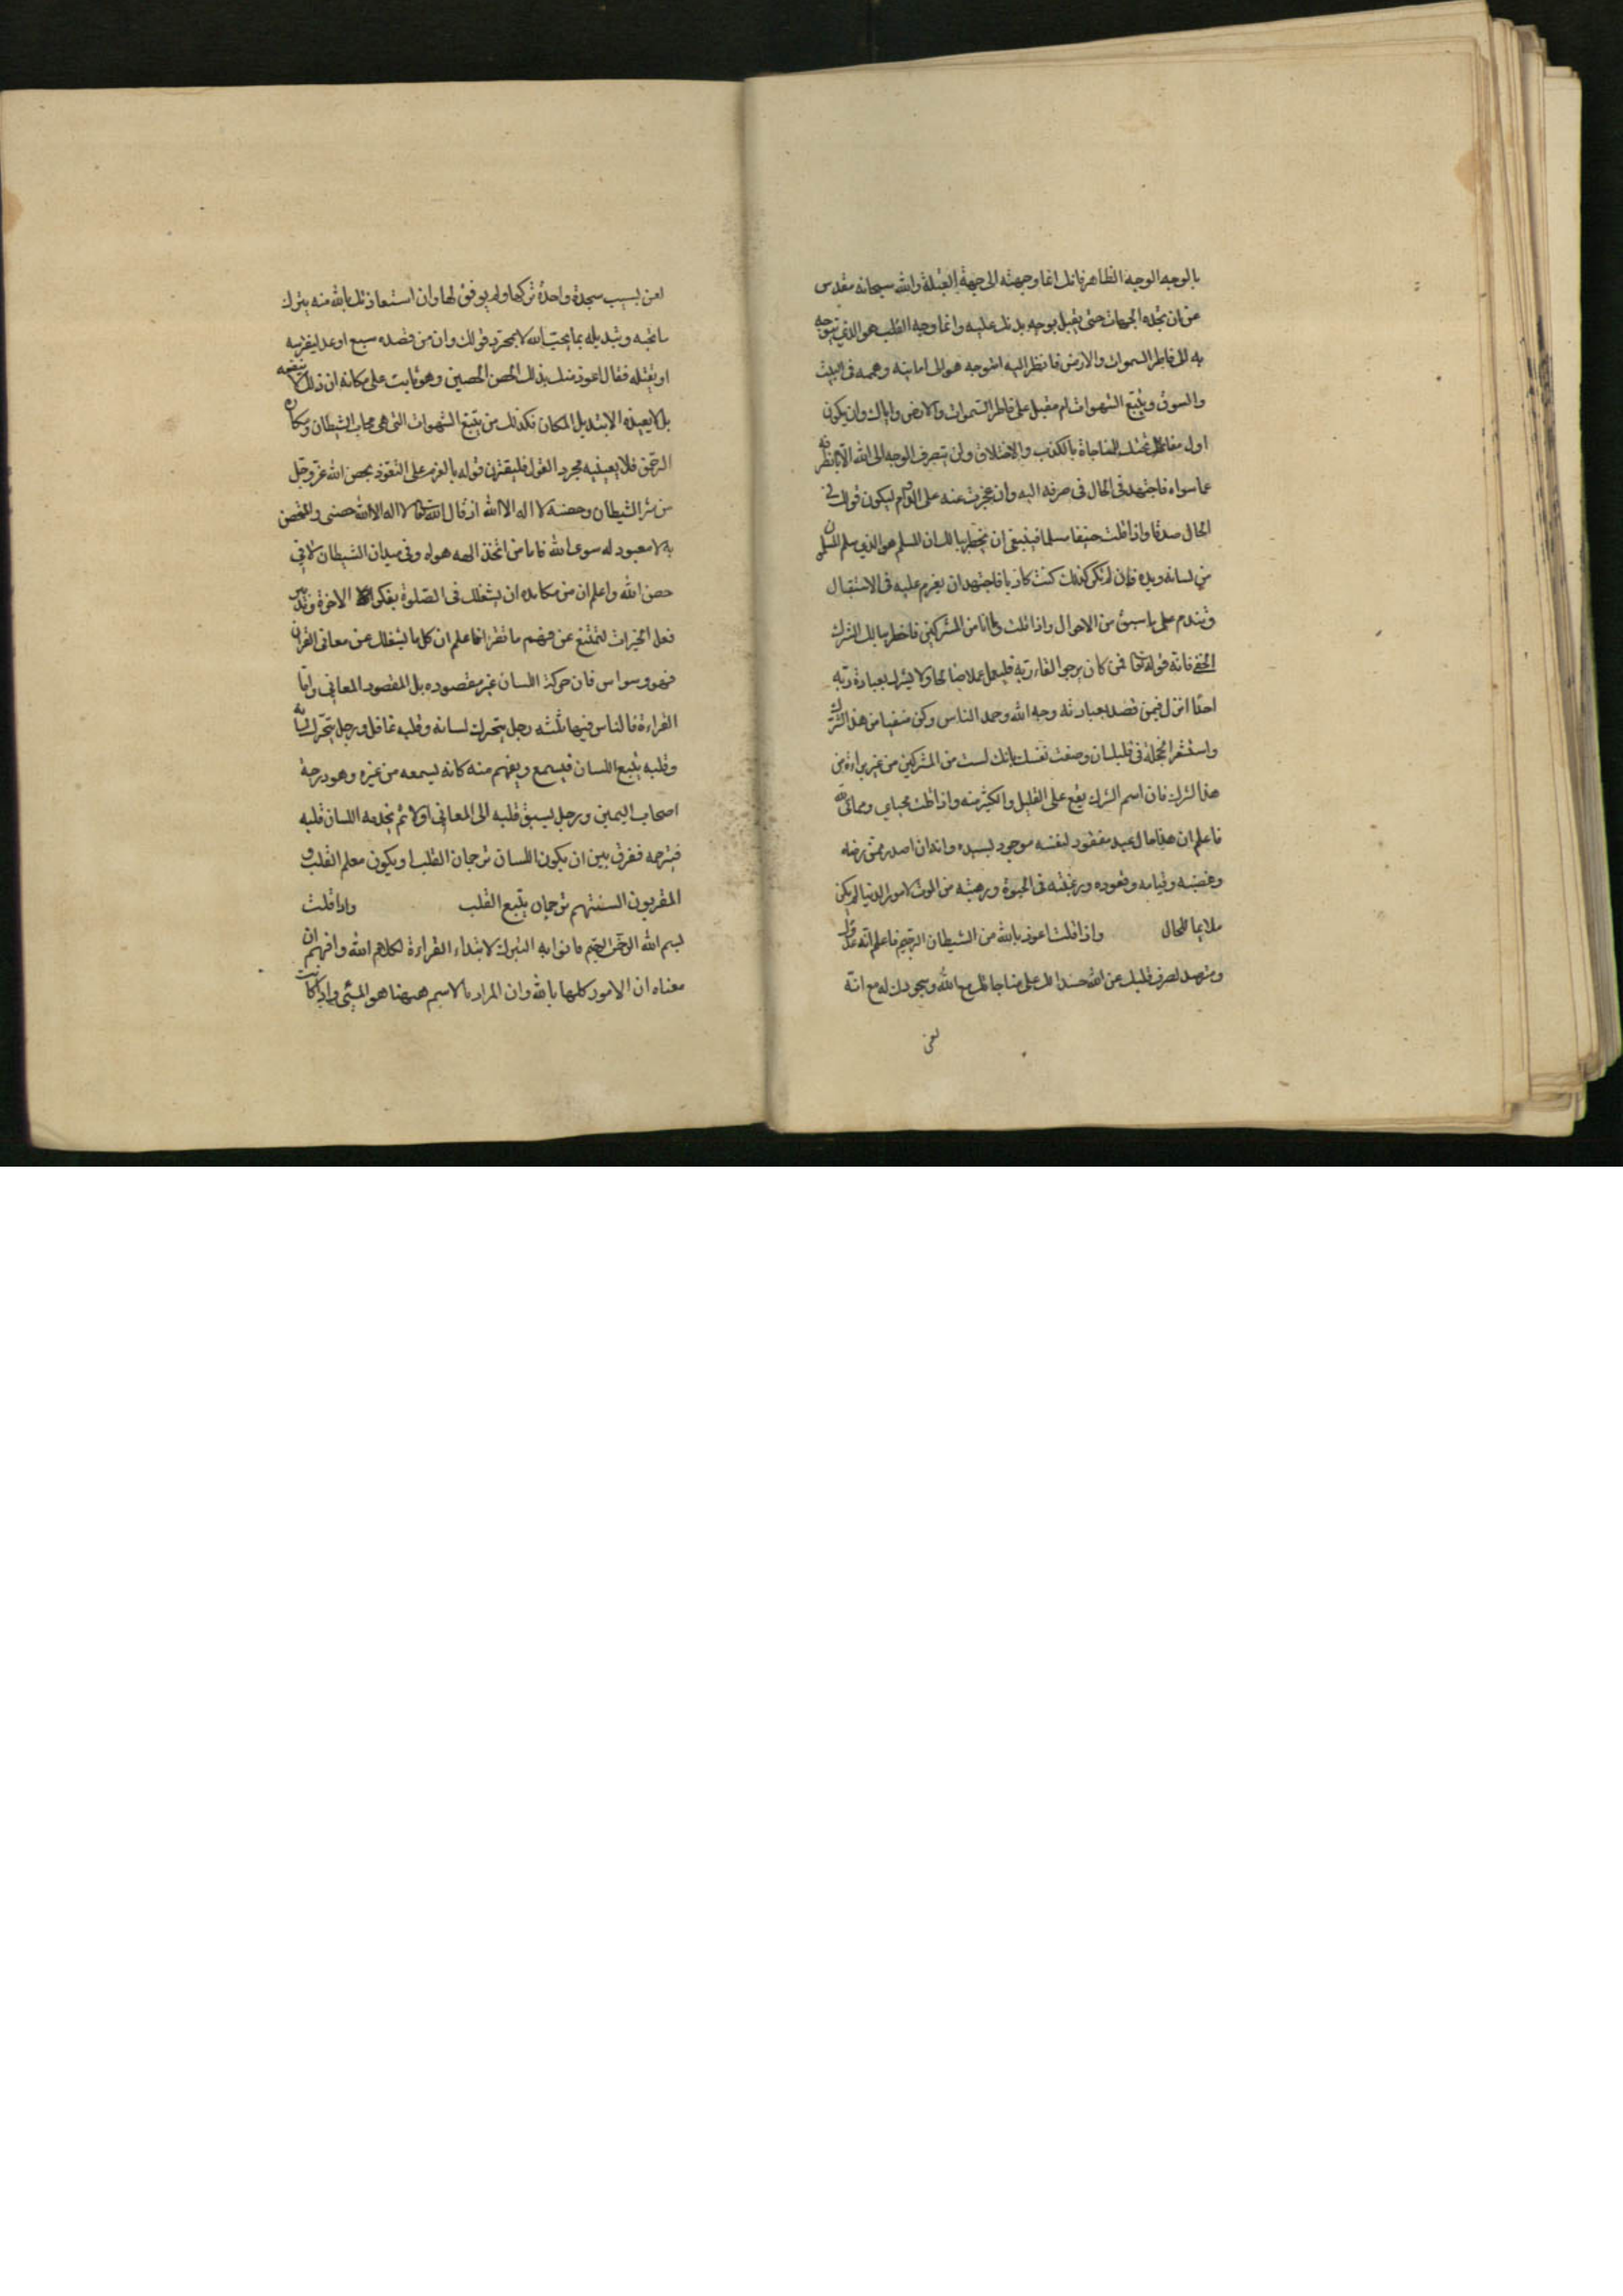 بالوجه الوجه الظاهر فانك انما وجهته الى جهة القبلة والله سبحانه مقدس
عن ان تحده الجهات حتى يقبل بوجه بدنك عليه وانما وجه القلب هو الذي تتوجه
به الى فاطر السموات والارض فانظر اليه امتوجه هو الى امانيه وهمه فى البيت
والسوق ويتبع الشهوات ام مقبل على فاطر السموات والارض واياك وان يكون
اول مفاتحتك للمناجاة بالكذب والاختلاق ولن يتصرف الوجه الى الله الا بانصرافه
عما سواه فاجتهد فى الحال فى صرفه اليه وان عجزت عنه على الدوام ليكون قولك فى
الحال صدقا واذا قلت حنيفا مسلما فينبغى ان يخطر بالك ان المسلم هو الذي سلم المسلمون
من لسانه ويده فان لم تكن كذلك كنت كاذبا فاجتهد ان يعزم عليه فى الاستقبال
وتندم على ما سبق من الاحوال واذا قلت وما انا من المشركين فاخطر ببالك الشرك
الخفى فانه قوله تعالى فمن كان يرجو القاء ربه فليعمل عملا صالحا ولا يشرك بعبادة ربه
احدًا انزل فيمن قصد بعبادته وجه الله وحمد الناس وكن متقيا من هذا الشرك
واستشعر الخجلة فى قلبك ان وصفت نفسك بانك لست من المشركين من غير براءة من
هذا الشرك فان اسم الشرك يقع على القليل والكثير منه واذا قلت محياي ومماتى لله
فاعلم ان هذا حال عبد مفقود لنفسه موجود لسيده وانه ان صدر ممن رضاه
وغضبه وقيامه وقعوده ورغبته فى الحيوة ورهبته من الموت لامور الدنيا لم يكن
ملايما للحال واذا قلت اعوذ بالله من الشيطان الرجيم فاعلم انه عدوك
ومترصد لصرف قلبك عن الله حسدا لك على مناجاتك مع الله وسجودك له مع انه
لعن
لعن بسبب سجدة واحدة تركها ولم يوفق لها وان استعاذتك بالله منه بترك
ما تحبه وتبديله بما يحب الله لا بمجرد قولك وان من قصده سبع او عدو ليفترسه
او يقتله فقال اعوذ منك بذلك الحصن الحصين وهو ثابت على مكانه ان ذلك لا ينفعه
بل لا يعيذه الا تبديل المكان فكذلك من يتبع الشهوات التى هى محاب الشيطان ومكاره
الرحمن فلا يعينيه مجرد القول فليقترن قوله بالعزم على التعوذ بحصن الله عز وجل
من شر الشيطان وحصنه لا اله الا الله اذ قال الله تعالى لا اله الا الله حصنى والمتحصن
به لا معبود له سوى الله فاما من اتخذ الهه هواه فهو فى ميدان الشيطان لا فى
حصن الله واعلم ان من مكايده ان يشغلك فى الصلوة بفكر الاخرة وتدبير
فعل الخيرات لتمتنع عن فهم ما تقرا فاعلم ان كل ما يشغلك عن معانى القران
فهو وسواس فان حركة اللسان غير مقصوده بل المقصود المعانى واما
القراءة فالناس فيها ثلثة رجل يتحرك لسانه وقلبه غافل ورجل يتحرك لسانه
وقلبه يتبع اللسان فيسمع ويفهم منه كانه يسمعه من غيره وهو درجة
اصحاب اليمين ورجل يسبق قلبه الى المعانى اولا ثم يخدمه اللسان قلبه
فيترجمه ففرق بين ان يكون اللسان ترجمان القلب او يكون معلم القلب و
المقربون السنتهم ترجمان يتبع القلب واذا قلت
بسم الله الرحمن الرحيم فانو به التبرك لابتداء القراءة لكلام الله وافهم ان
معناه ان الامور كلها بالله وان المراد بالاسم ههنا هو المسمى واذا كانت